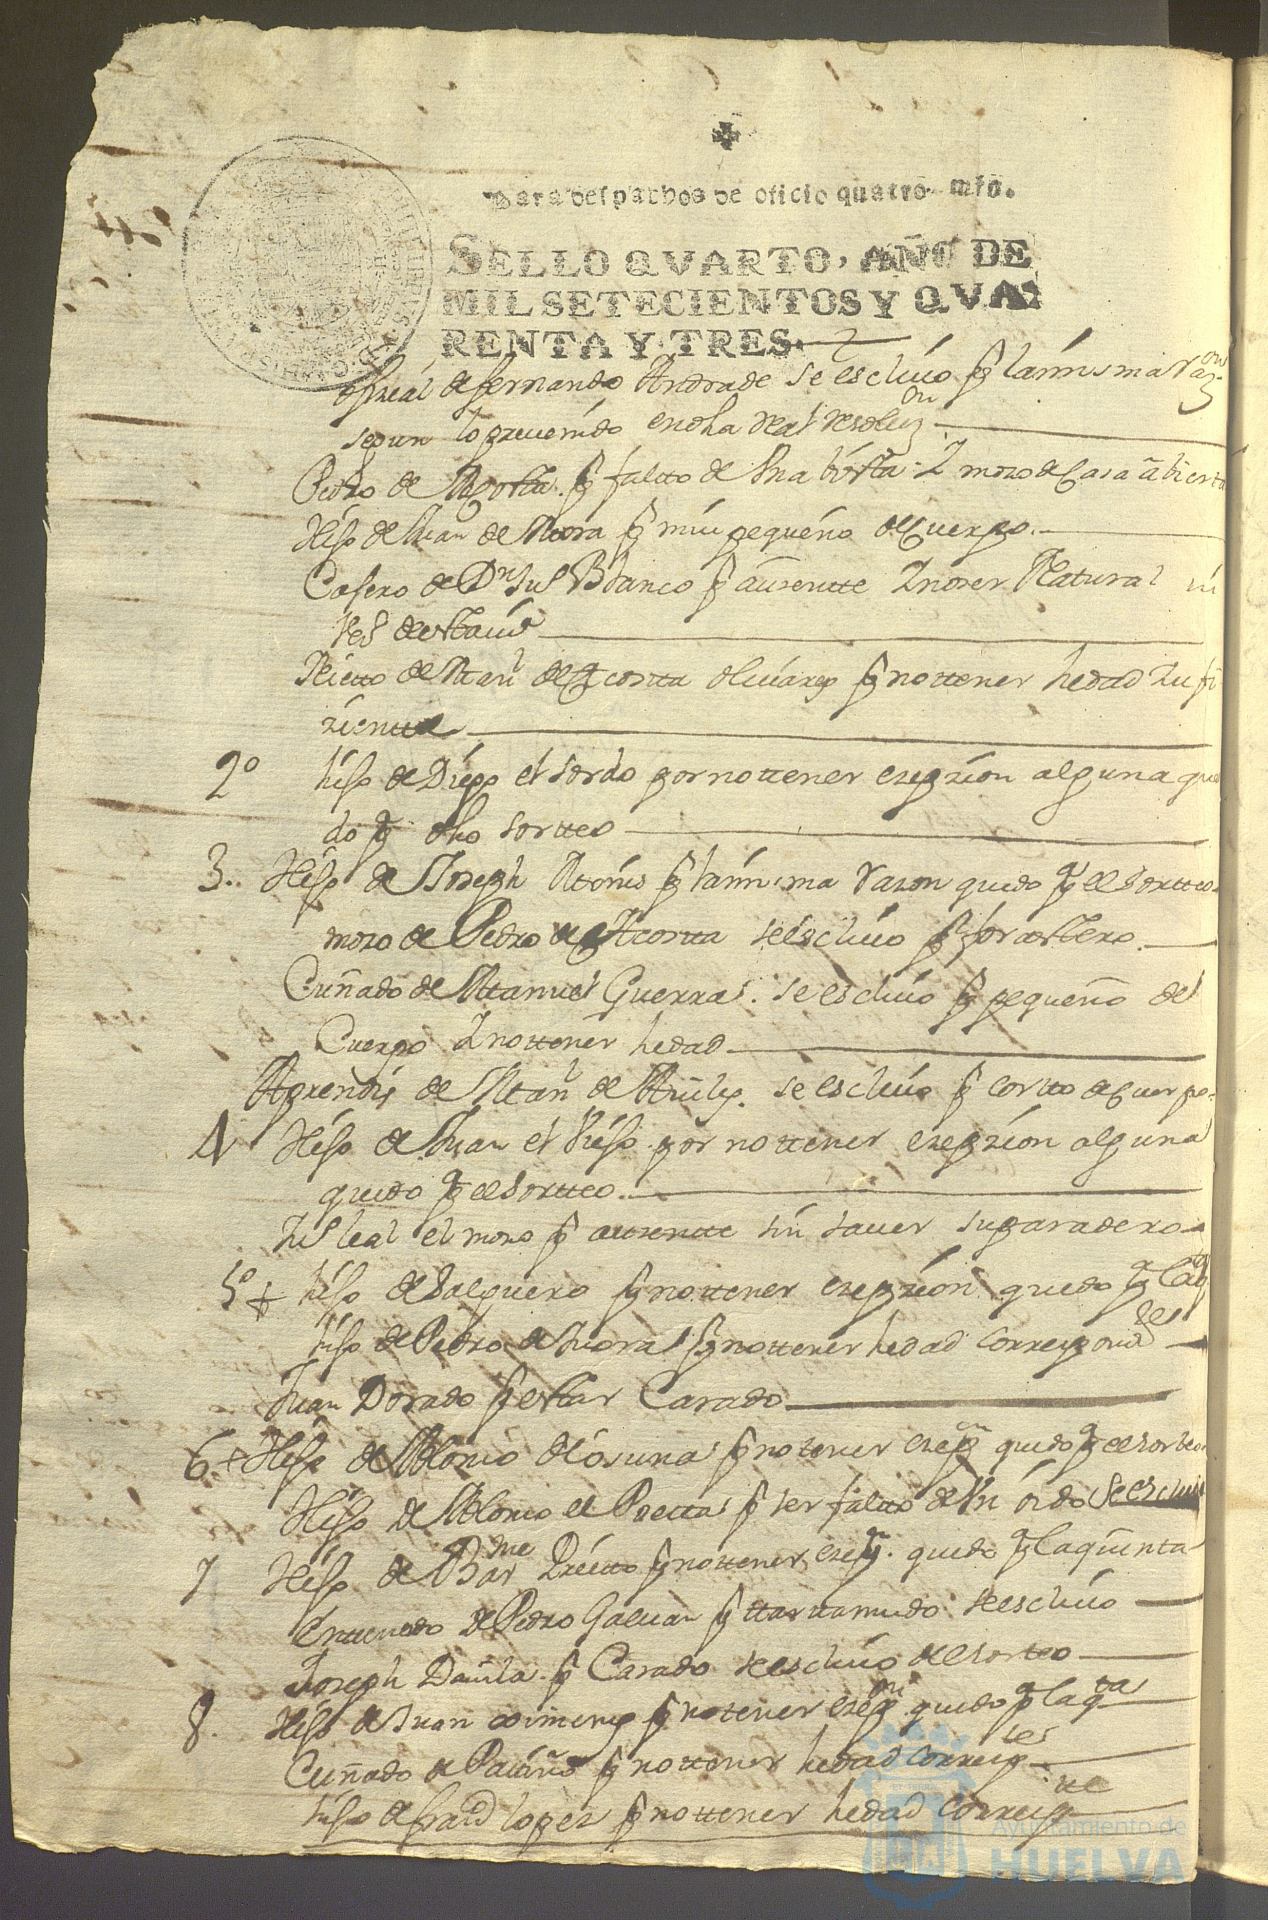 Para despachos de oficio quatro mrs.
SELLO QVARTO, AÑO DE
MIL SETECIENTOS Y QVA-
RENTA Y TRES.
de Fernando Andrade se escluio p la misma razon
segun lo prevenido en dha Real Resoluzn
Pedro de Acosta p faltto de Una vista Y mozo de Casa abierta
Hijo de Juan de Mora p mui pequeño de Cuerpo.
Casero de Dn Blanco p aussentte Y noser Natural
desttaVa
Nietto de Manl de Acostta Oliuares p nottener hedad Zufi
zientte
2º hijo de Diego el sordo por nottener exepzion alguna que
do pa dho sortteo
3. Hijo de Joseph p la misma Razon quedo pa el sortteo
mozo de Pedro de Acostta se escluio p forasttero.
Cuñado de Manuel Guerra. se escluio p pequeño de
Cuerpo Y nottener hedad
Aprendis de Manl de se escluio p cortto de Cuerpo.
4 Hijo de Juan el Viejo por nottener exepzion alguna
quedo pa el sortteo.
leal el mozo p aussentte sin sauer su paradero
5º + hijo de Salguero p nottener exepzion quedo pa
hijo de Pedro de Mora p nottener hedad correspond
Juan Dorado p esttar Casado
6 + Hijo de Alonso de Osuna p no tener exepn quedo pa el sorteo
Hijo de Alonso el p ser faltto de Un oido se escluio
7 Hijo de Barme Prietto p nottener exepn. quedo pa la quinta
Enttenado de Pedro Galuan p ttarttamudo se escluio
Joseph Dauila p Casado se escluio del sorteo
8. Hijo de Juan ximenez p notener exepon quedo pa la qta
Cuñado de Patiño p nottener hedad corresp
hijo de lopez p nottener hedad corresp
Ayuntamiento de
HUELVA